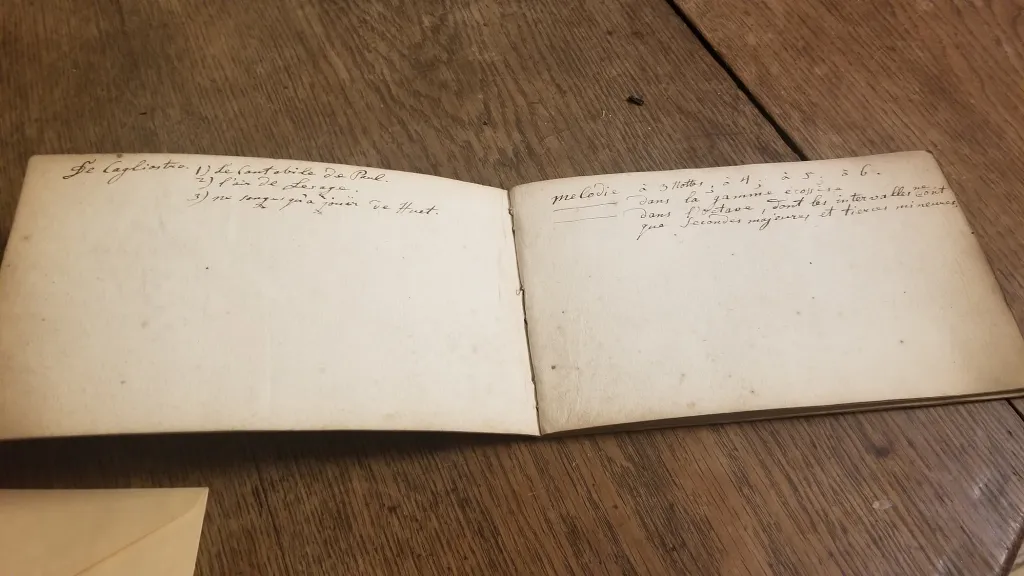 De Cagliostro. 1) Le Cantabile de Paul.
2) l'air de Lesage.
3) ne songer qu'a jouir de Huet.
melodie à 3 Nottes, à 4, à 5, à 6.
dans la gamme ecossaise
dans l'octave, dont les intervalles ne sont
que secondes majeures et tierces mineures.